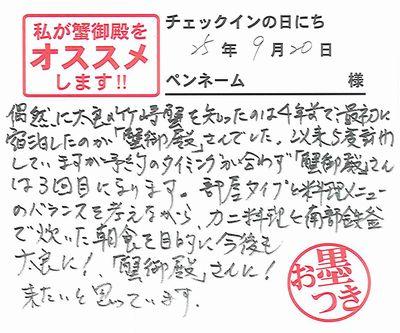 私が蟹御殿を
オススメ
します!!
チェックインの日にち
25年 9月20日
ペンネーム 様
偶然に太良の竹崎蟹を知ったのは4年前で最初に
宿泊したのが「蟹御殿」さんでした。以来5度訪れ
していますが予約のタイミングが合わず「蟹御殿」さん
は3回目になります。部屋タイプと料理メニュー
のバランスを考えながら、カニ料理と南部鉄釜
で炊いた朝食を目的に今後も
太良に!、「蟹御殿」さんに!
来たいと思っています。
お墨つき